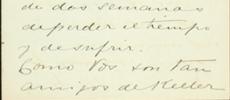 de dos semanas
de perder el tiempo
y de sufrir.
Como Vos son tan
amigos de Keller